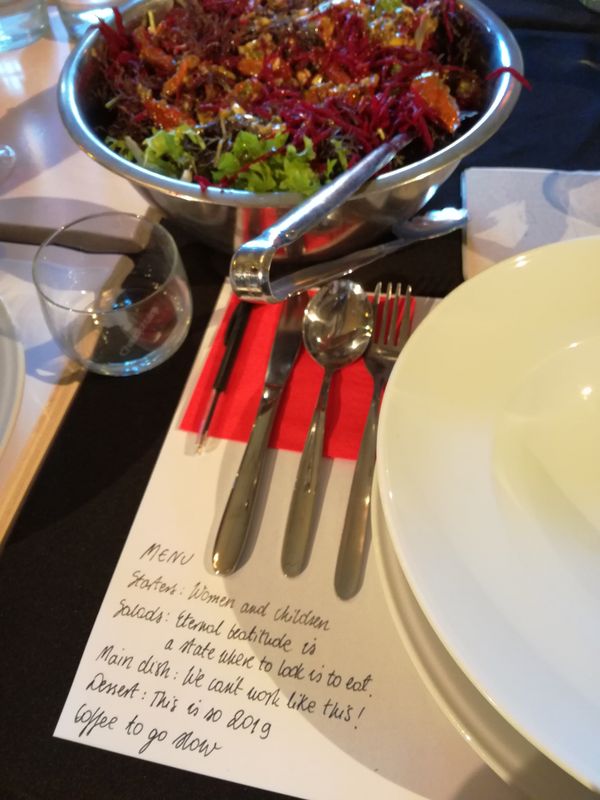 MENU
Starters: Women and children
Salads: Eternal beatitude is
a state where to look is to eat.
Main dish: We can't work like this!
Dessert: This is so 2019
Coffee to go slow